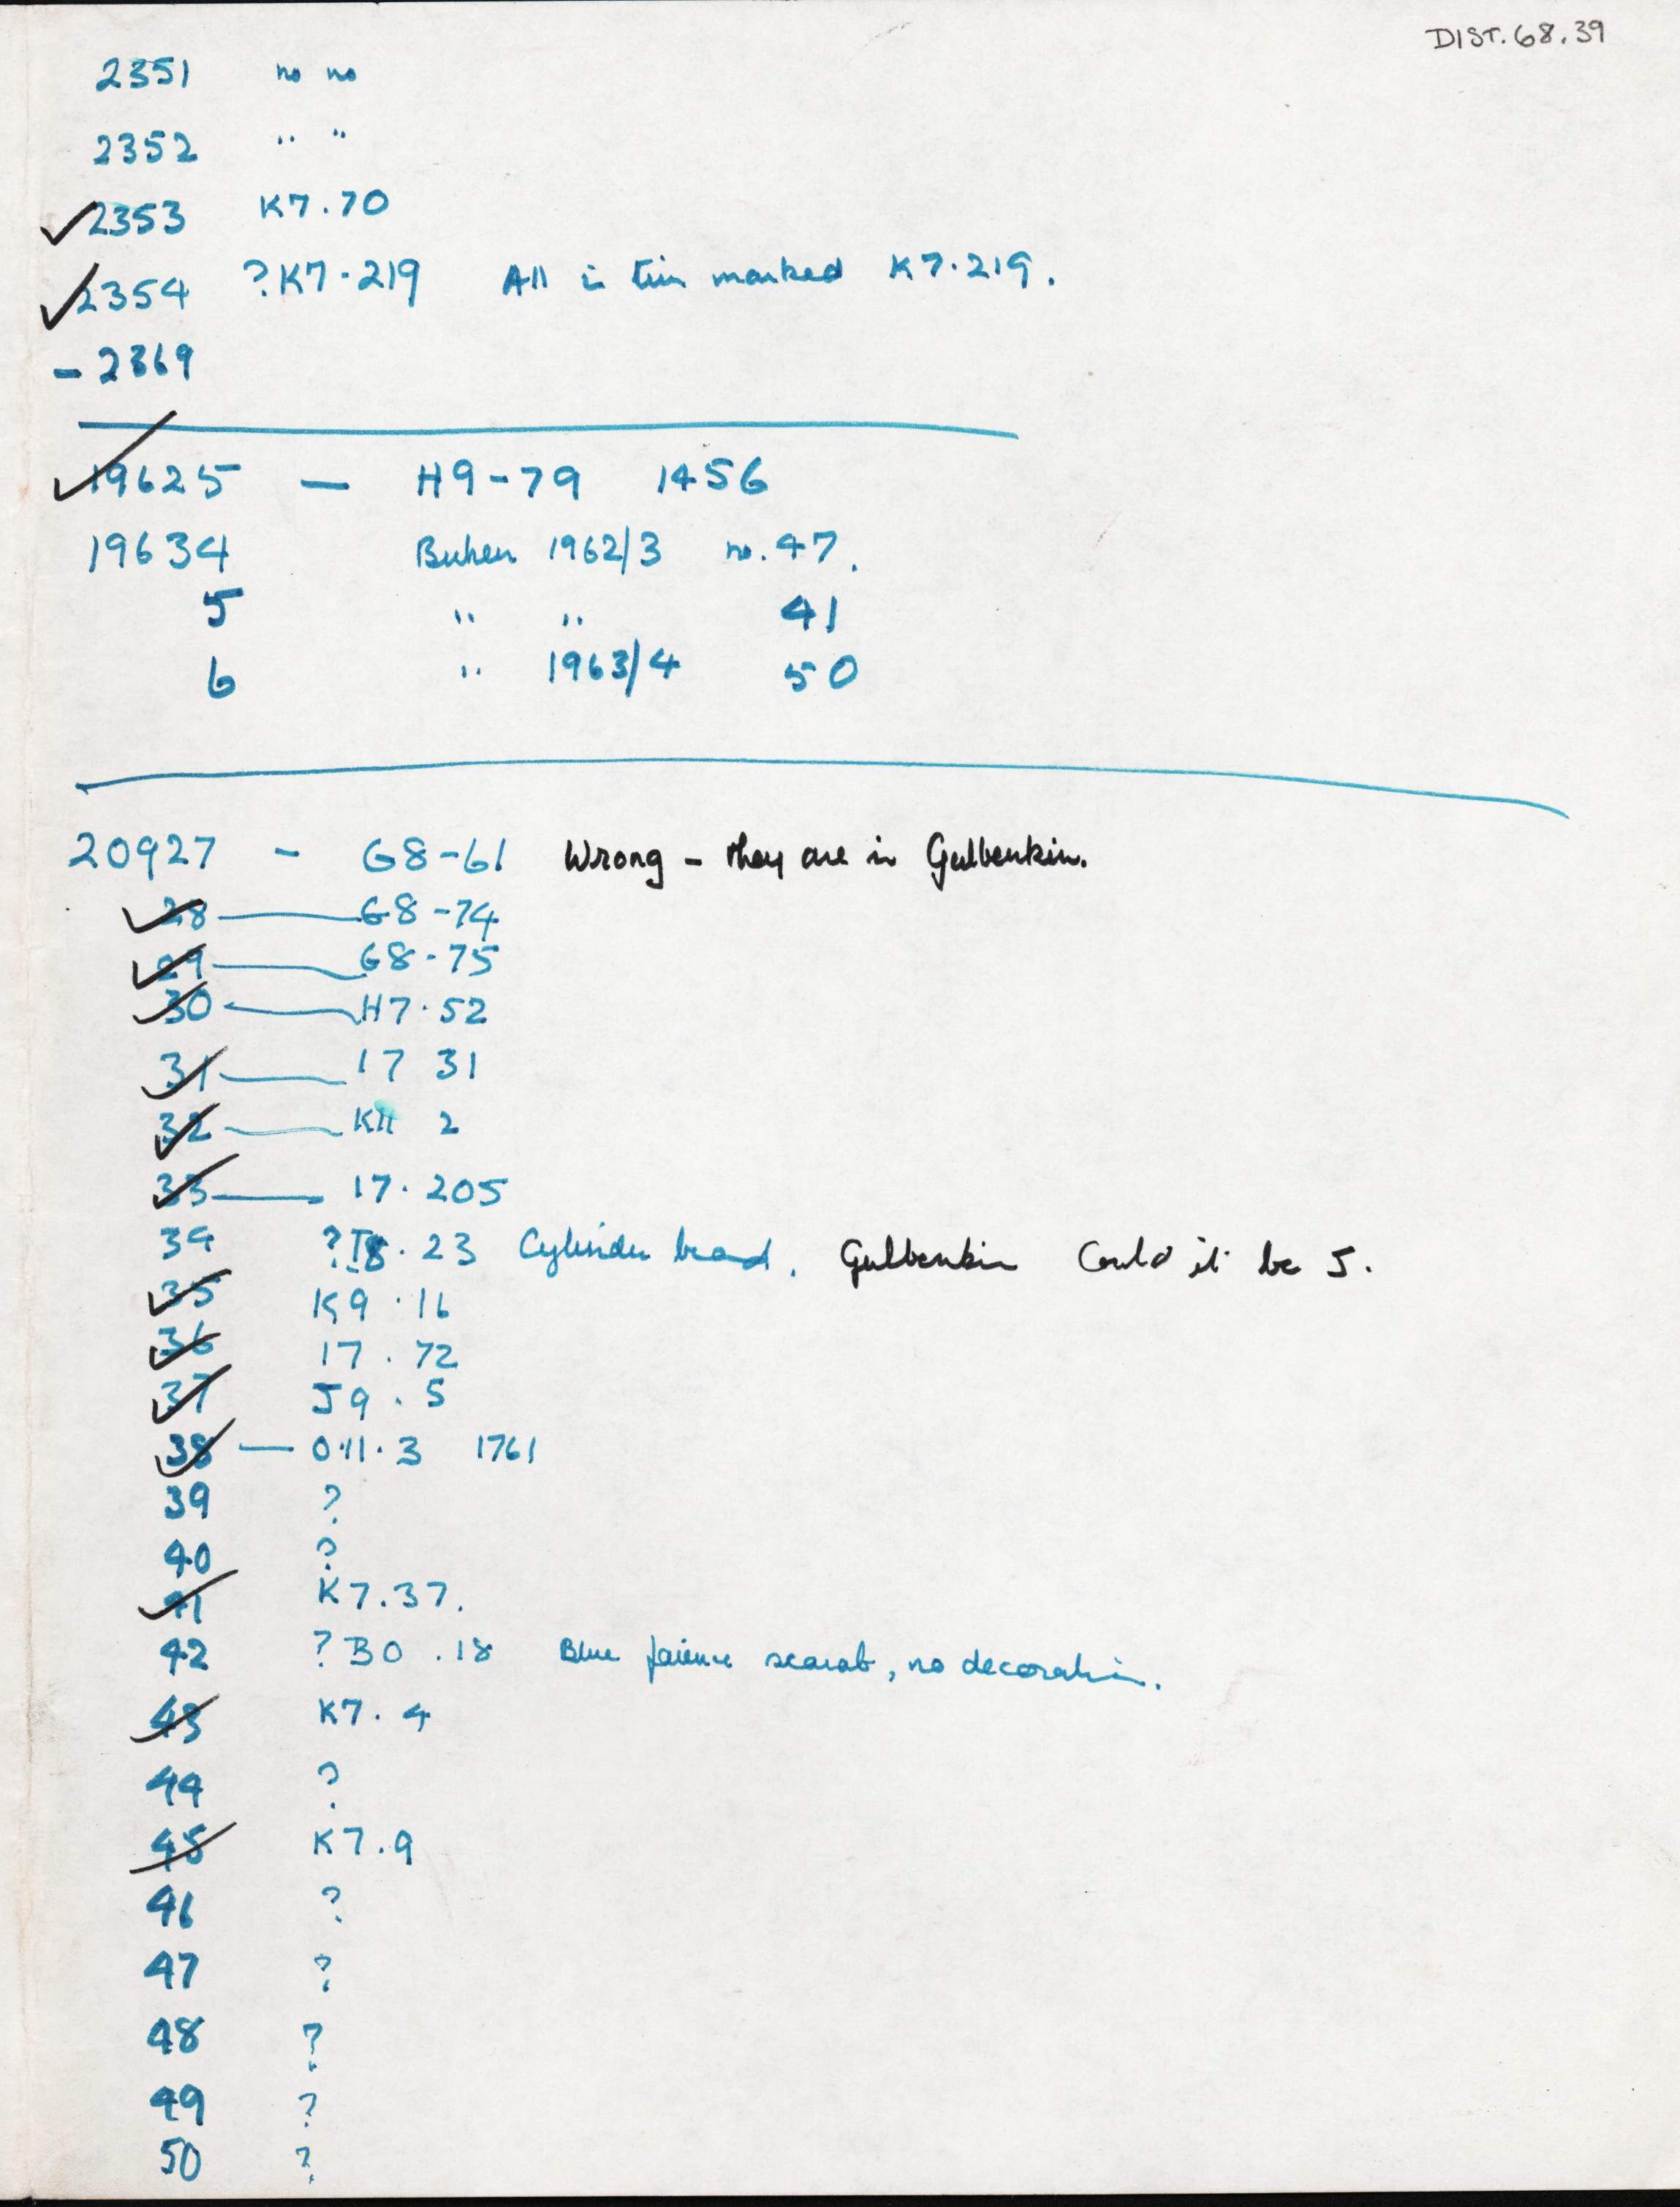 DIST.68.39
2351 no no
2352 " "
✓2353 K7.70
✓2354 ?K7-219 All in tin marked K7.219.
- 2369
✓19625 — H9-79 1456
19634 Buhen 1962/3 no. 47.
5 " " 41
6 " 1963/4 50
20927 - G8-61 Wrong - they are in Gulbenkin.
✓28 — G8-74
✓29 — G8-75
✓30 — H7.52
✓31 — 17 31
✓32 — K11 2
✓33 — 17.205
34 ? 23 Cylinder bead. Gulbenkin Could it be 5.
✓35 K9.16
✓36 17.72
✓37 J9.5
✓38 — 0.11.3 1761
39 ?
40 ?
✓41 K7.37.
42 ?B0.18 Blue faience scarab, no decoration.
✓43 K7.4
44 ?
✓45 K7.9
46 ?
47 ?
48 ?
49 ?
50 ?